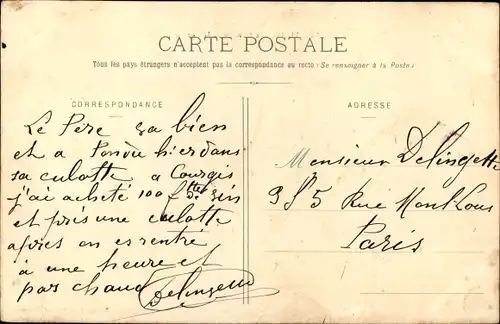 CARTE POSTALE
Tous les pays étrangers n'acceptent pas la correspondance au recto (Se renseigner à la Poste)
CORRESPONDANCE
ADRESSE
Le Pere va bien
et a Pondu hier dans
sa culotte a Courgis
j'ai acheté 100 vin
et pris une culotte
apres on es rentré
à une heure et
pas chaud Delingette
Monsieur Delingette
9 Rue Mont Louis
Paris